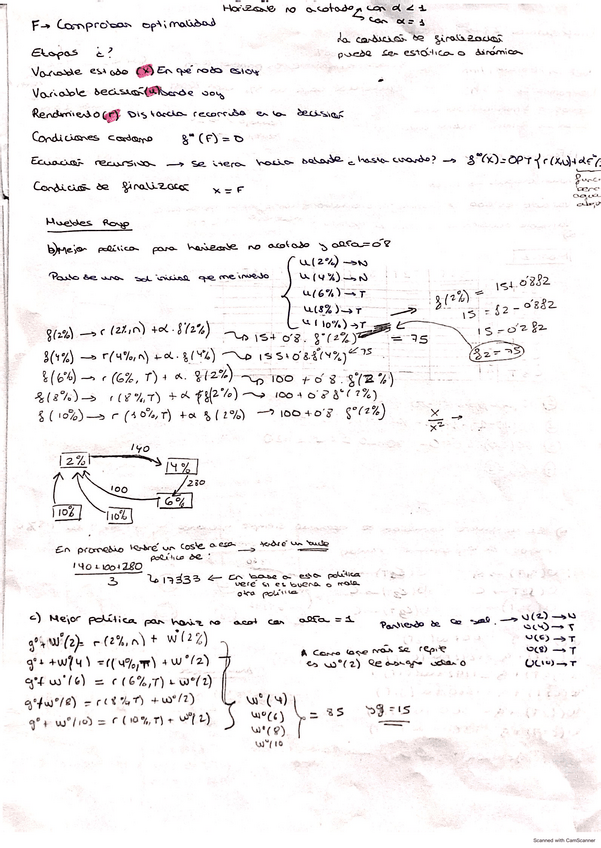 Horizonte no acotado con α < 1
con α = 1
F → Comprobar optimalidad
La condición de finalización
puede ser estática o dinámica
Etapas ¿?
Variable estado (x) En qué nodo estoy
Variable decisión (u) Donde voy
Rendimiento (r) Distancia recorrida en la decisión
Condiciones contorno f*(F) = 0
Ecuación recursiva → se itera hacia delante ¿hasta cuando? → f^n(x) = OPT { r(x,u) + α f
Condición de finalización x = F
Muebles Royo
b) Mejor política para horizonte no acotado y alfa = 0'8
Parto de una sol inicial que me invento
u(2%) → N
u(4%) → N
u(6%) → T
u(8%) → T
u(10%) → T
f(2%) = 15 + 0'8f2
15 = f2 - 0'8f2
15 = 0'2f2
f2 = 75
f(2%) → r(2%,n) + α·f(2%) → 15 + 0'8·f°(2%) = 75
f(4%) → r(4%,n) + α·f(4%) → 155 + 0'8·f°(4%) 75
f(6%) → r(6%,T) + α·f(2%) → 100 + 0'8·f°(2%)
f(8%) → r(8%,T) + α f(2%) → 100 + 0'8 f°(2%)
f(10%) → r(10%,T) + α f(2%) → 100 + 0'8 f°(2%)
x/x² →
140
2%
4%
100
230
6%
10%
10%
En promedio tendré un coste a esa política de:
→ tendré un bucle
140+100+280
3
173'33 ← En base a esta política
veré si es buena o mala
otra política
c) Mejor política para horiz no acot con alfa = 1
Partiendo de la sol. →
u(2) → N
u(4) → T
u(6) → T
u(8) → T
u(10) → T
g° + W°(2) = r(2%,n) + W°(2%)
g° + W°(4) = r(4%,T) + W°(2)
g° + W°(6) = r(6%,T) + W°(2)
g° + W°(8) = r(8%,T) + W°(2)
g° + W°(10) = r(10%,T) + W°(2)
A como que más se repite
es W°(2) le asigno valor 0
W°(4)
W°(6)
W°(8)
W°(10
= 85 y g = 15
Scanned with CamScanner